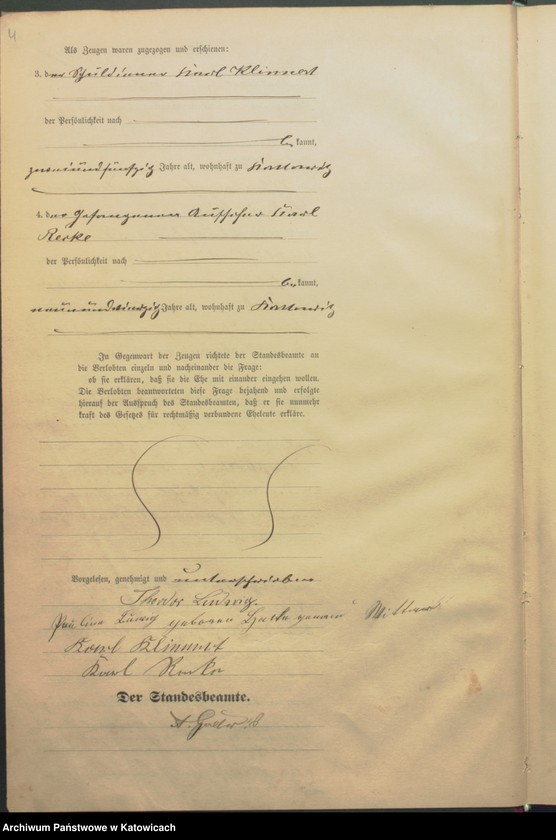 4
Als Zeugen waren zugezogen und erschienen:
3. der Schuldiener Karl Klinnert
der Persönlichkeit nach
be kannt,
zweiundfünfzig Jahre alt, wohnhaft zu Kattowitz
4. der Gefangenen Aufseher Karl
Renke
der Persönlichkeit nach
be kannt,
neunundvierzig Jahre alt, wohnhaft zu Kattowitz
In Gegenwart der Zeugen richtete der Standesbeamte an
die Verlobten einzeln und nacheinander die Frage:
ob sie erklären, daß sie die Ehe mit einander eingehen wollen.
Die Verlobten beantworteten diese Frage bejahend und erfolgte
hierauf der Ausspruch des Standesbeamten, daß er sie nunmehr
kraft des Gesetzes für rechtmäßig verbundene Eheleute erkläre.
Vorgelesen, genehmigt und unterschrieben
Theodor Ludwig.
Pauline Ludwig geborene genannt
Karl Klinnert
Karl Renke
Der Standesbeamte.